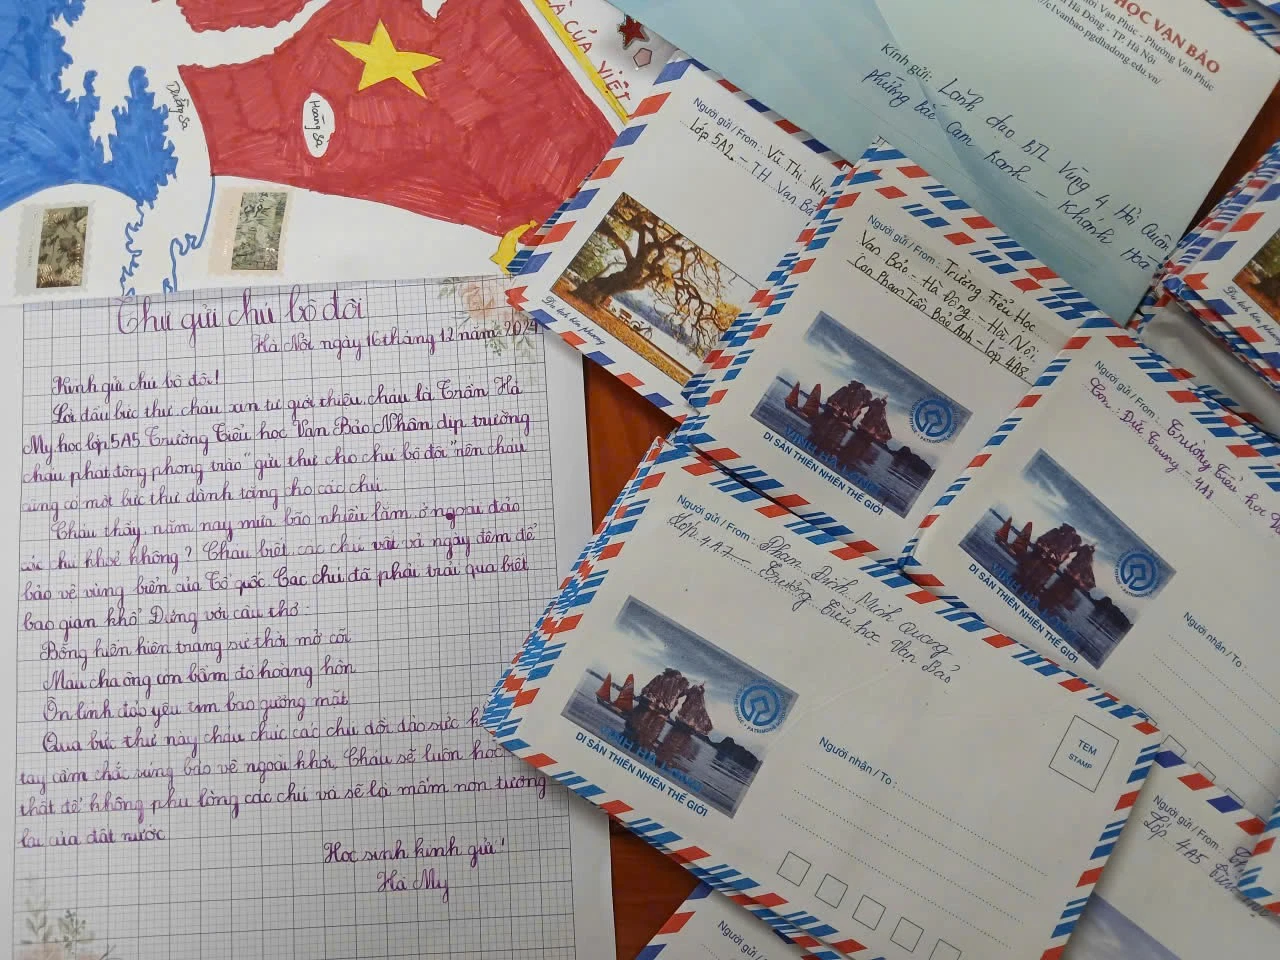 CỦA VIỆT
Hoàng Sa
HỌC VẠN BẢO
Vạn Phúc - Phường Vạn Phúc
Hà Đông - TP. Hà Nội
c1vanbao.pgdhadong.edu.vn/
Kính gửi: Lãnh đạo BTL Vùng 4 Hải Quân
Khánh Hoà
Người gửi / From: Vũ Thị Kim
Lớp 5A2 - T.H Vạn Bả
Người gửi / From: Trường Tiểu Học
Vạn Bảo - Hà Đông - Hà Nội.
Con Phạm Trần Bảo Anh - lớp 4A8
VỊNH HẠ LONG
DI SẢN THIÊN NHIÊN THẾ GIỚI
Người gửi / From: Trường Tiểu học
Con: Đức Trung - 4A8
VỊNH HẠ LONG
DI SẢN THIÊN NHIÊN THẾ GIỚI
Người nhận / To:
Người gửi / From: Phạm Đình Minh Quang
Lớp 4A7 - Trường Tiểu học Vạn Bảo
VỊNH HẠ LONG
DI SẢN THIÊN NHIÊN THẾ GIỚI
Người nhận / To:
TEM
STAMP
Người gửi / From:
Lớp 4A5
Người gửi / From:
Thư gửi chú bộ đội
Hà Nội ngày 16 tháng 12 năm 2024
Kính gửi chú bộ đội!
Lời đầu bức thư cháu xin tự giới thiệu, cháu là Trần Hà
My học lớp 5A5 Trường Tiểu học Vạn Bảo. Nhân dịp trường
cháu phát động phong trào "gửi thư cho chú bộ đội" nên cháu
cũng có một bức thư dành tặng cho các chú.
Cháu thấy năm nay mưa bão nhiều lắm ở ngoài đảo
các chú khoẻ không? Cháu biết các chú vất vả ngày đêm để
bảo vệ vùng biển của Tổ quốc. Các chú đã phải trải qua biết
bao gian khổ. Đúng với câu thơ:
Bỗng hiển hiện trang sử thời mở cõi
Máu cha ông còn bầm đỏ hoàng hôn
Ôn linh đảo yêu tìm bao gương mặt
Qua bức thư này cháu chúc các chú dồi dào sức
tay cầm chắc súng bảo vệ ngoài khơi. Cháu sẽ luôn học
thật để không phụ lòng các chú và sẽ là mầm non tương
lai của đất nước.
Học sinh kính gửi!
Hà My